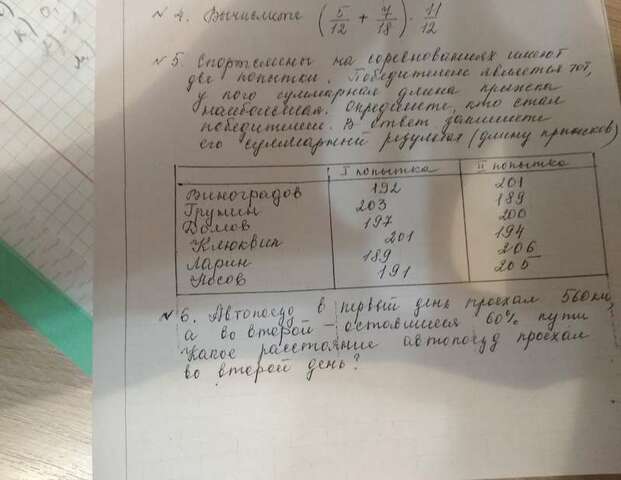 № 4. Вычислите (5/12 + 7/18) · 11/12
№ 5. Спортсмены на соревнованиях имеют
две попытки. Победителем является тот,
у кого суммарная длина прыжка
наибольшая. Определите, кто стал
победителем. В ответ запишите
его суммарный результат (длину прыжков)
I попытка II попытка
Виноградов 192 201
Грушин 203 189
Домов 197 200
Клюквин 201 194
Ларин 189 206
Носов 191 205
№ 6. Автопоезд в первый день проехал 560 км,
а во второй – оставшиеся 60% пути
Какое расстояние автопоезд проехал
во второй день?